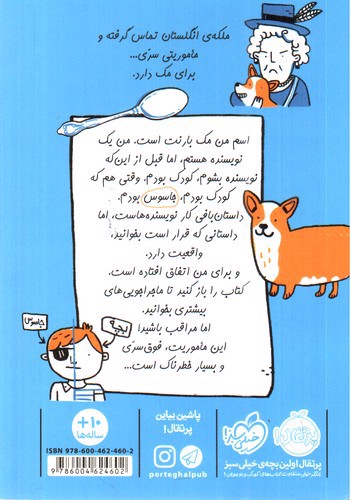 ملکه‌ی انگلستان تماس گرفته و
ماموریتی سرّی...
برای مک دارد.
اسم من مک بارنت است. من یک
نویسنده هستم، اما قبل از این‌که
نویسنده بشوم، کودک بودم. وقتی هم که
کودک بودم، جاسوس بودم.
داستان‌بافی کار نویسنده‌هاست، اما
داستانی که قرار است بخوانید،
واقعیت دارد.
و برای من اتفاق افتاده است.
کتاب را باز کنید تا ماجراجویی‌های
بیشتری بخوانید.
اما مراقب باشید!
این ماموریت، فوق‌سرّی
و بسیار خطرناک است...
جاسوس
بچه
ISBN 978-600-462-460-2
9 786004 624602
+۱۰
ساله‌ها
پاشین بیاین
پرتقال!
porteghalpub
خیلی سبز
پرتقال
پرتقال اولین بچه‌ی خیلی سبز